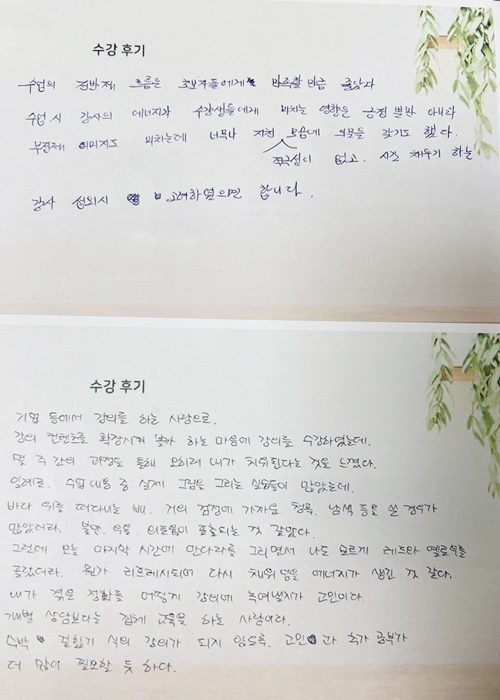 수강 후기
수업의 전반적 흐름은 초보자들에게 만족할만큼 좋았다
수업 시 강사의 에너지가 수강생들에게 미치는 영향은 긍정 뿐만 아니라
부정적 이미지도 미치는데 너무나 지친 모습에 의문을 갖기도 했다.
적극성이 없고. 시간 채우기 하는
강사 섭외시 고려하였으면 합니다.
수강 후기
기업 등에서 강의를 하는 사람으로.
강의 컨텐츠를 확장시켜 볼까 하는 마음에 강의를 수강하였는데.
몇 주 간의 과정을 통해 오히려 내가 치유된다는 것을 느꼈다.
일례로. 수업 내용 중 실제 그림을 그리는 실습들이 많았는데.
바다 위를 떠다니는 배. 거의 검정에 가까운 청록, 남색 등을 쓴 경우가
많았더라. 불안. 우울. 외로움이 표출되는 것 같았다.
그런데 오늘 마지막 시간에 만다라를 그리면서 나도 모르게 레드와 옐로우를
골랐더라. 뭔가 리프레시되어 다시 채워 넣을 에너지가 생긴 것 같다.
내가 겪은 점화를 어떻게 강의에 녹여낼지가 고민이다.
개별 상담보다는 집체 교육을 하는 사람이라.
수박 겉핥기 식의 강의가 되지 않도록. 고민과 추가 공부가
더 많이 필요할 듯 하다.